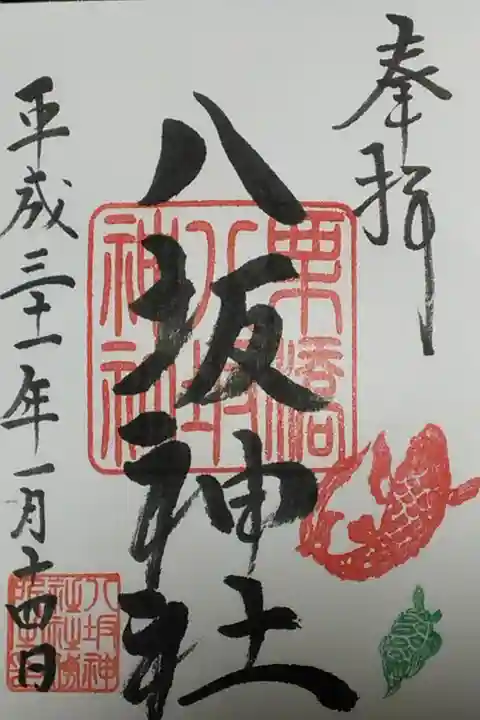 奉拝
八坂神社
栗橋
八坂
神社
平成三十一年一月十四日
八坂神
社社務